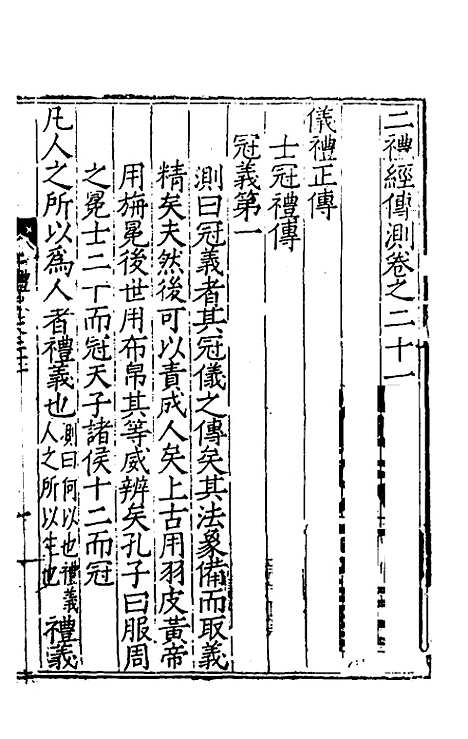 二禮經傳測卷之二十一
儀禮正傳
士冠禮傳
冠義第一
測曰冠義者其冠儀之傳矣其法象備而取義
精矣夫然後可以責成人矣上古用羽皮黃帝
用旃冕後世用布帛其等威辨矣孔子曰服周
之冕士二丅而冠天子諸侯十二而冠
凡人之所以爲人者禮義也測曰何以也禮義人之所以生也禮義